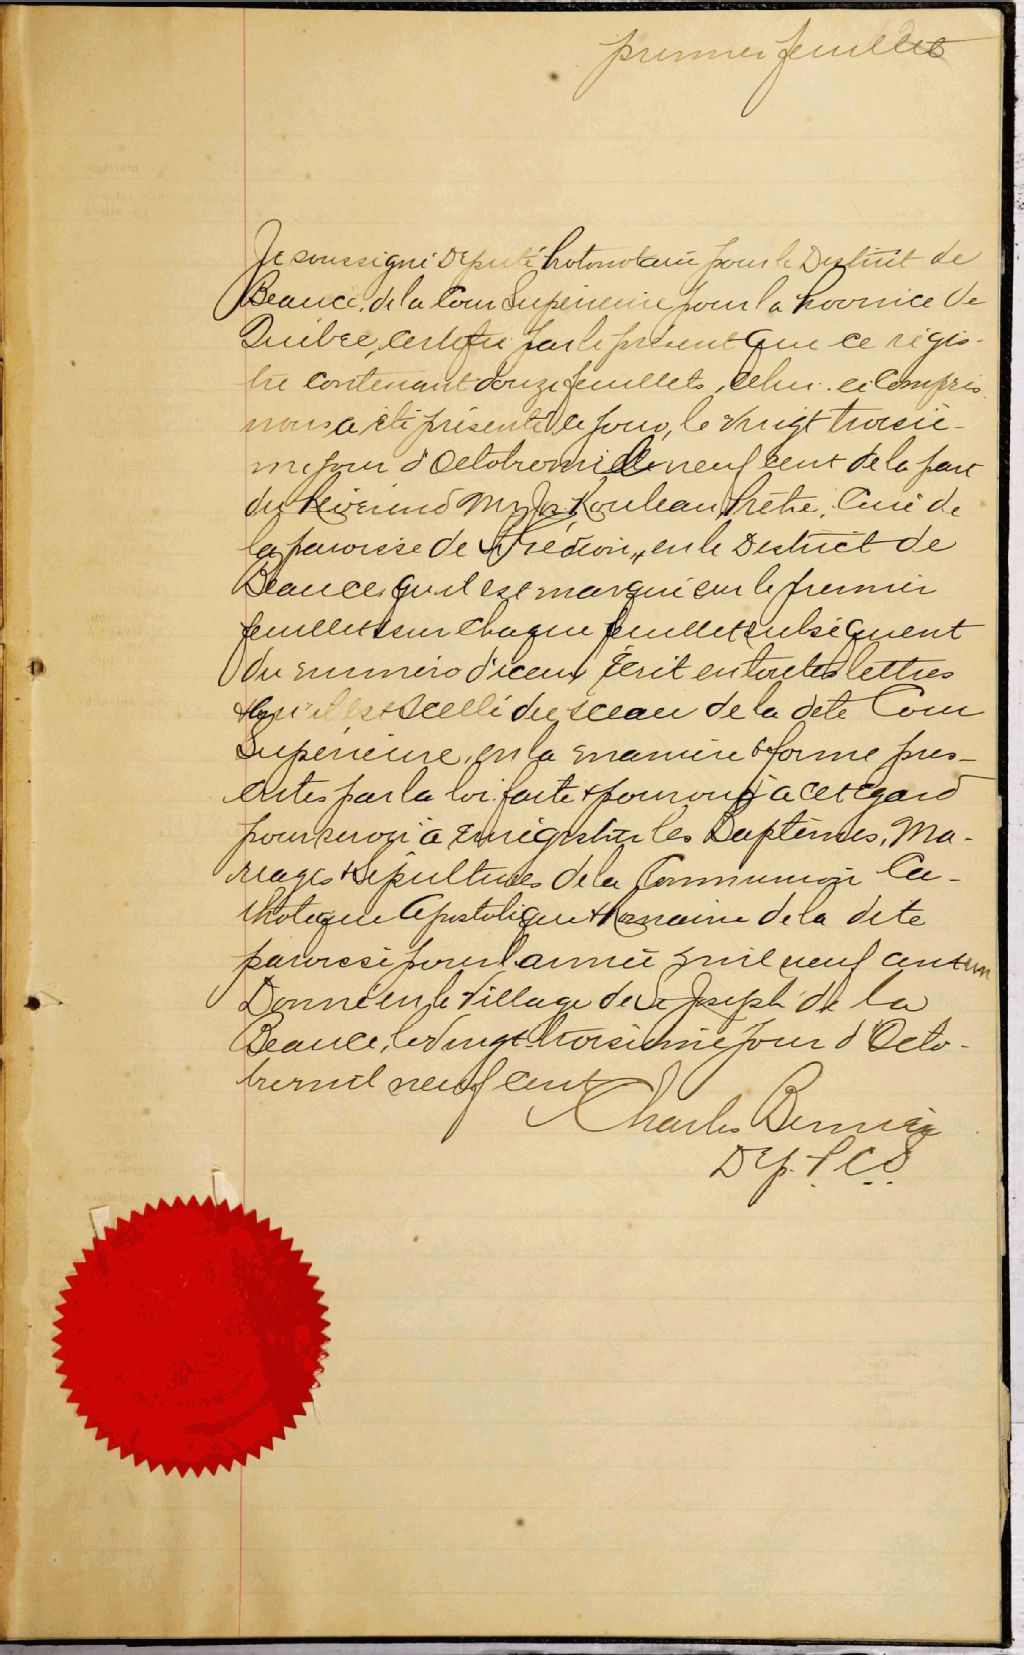 premier feuillet
Je soussigné Député Protonotaire pour le District de
Beauce, de la Cour Supérieure pour la Province de
Québec, certifie par le présent que ce régis-
tre contenant douze feuillets, celui-ci compris
nous a été présenté ce jour, le vingt troisiè-
me jour d'Octobre mil neuf cent de la part
du Révérend Mr Jos Rouleau Prêtre, Curé de
la paroisse de , en le District de
Beauce, qu'il est marqué sur le premier
feuillet & sur chaque feuillet subséquent
du numéro d'iceux écrit en toutes lettres
& qu'il est scellé du sceau de la dite Cour
Supérieure, en la manière & forme pres-
crites par la loi faite & pourvu à cet égard
pour servir à enrégistrer les Baptêmes, Ma-
riages & Sépultures de la Communion Ca-
tholique Apostolique & Romaine de la dite
paroisse pour l'année mil neuf cent un
Donné en le village de St Joseph de la
Beauce, le vingt-troisième jour d'Octo-
bre mil neuf cent
Charles Bernier
Dép. P.C.S.